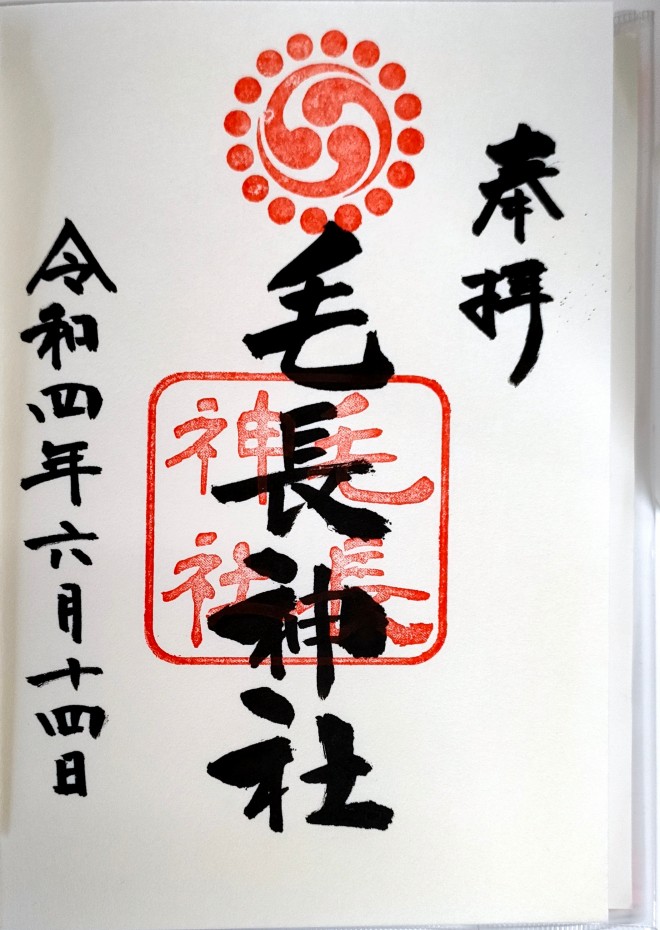 奉拝
毛長神社
毛長
神社
令和四年六月十四日